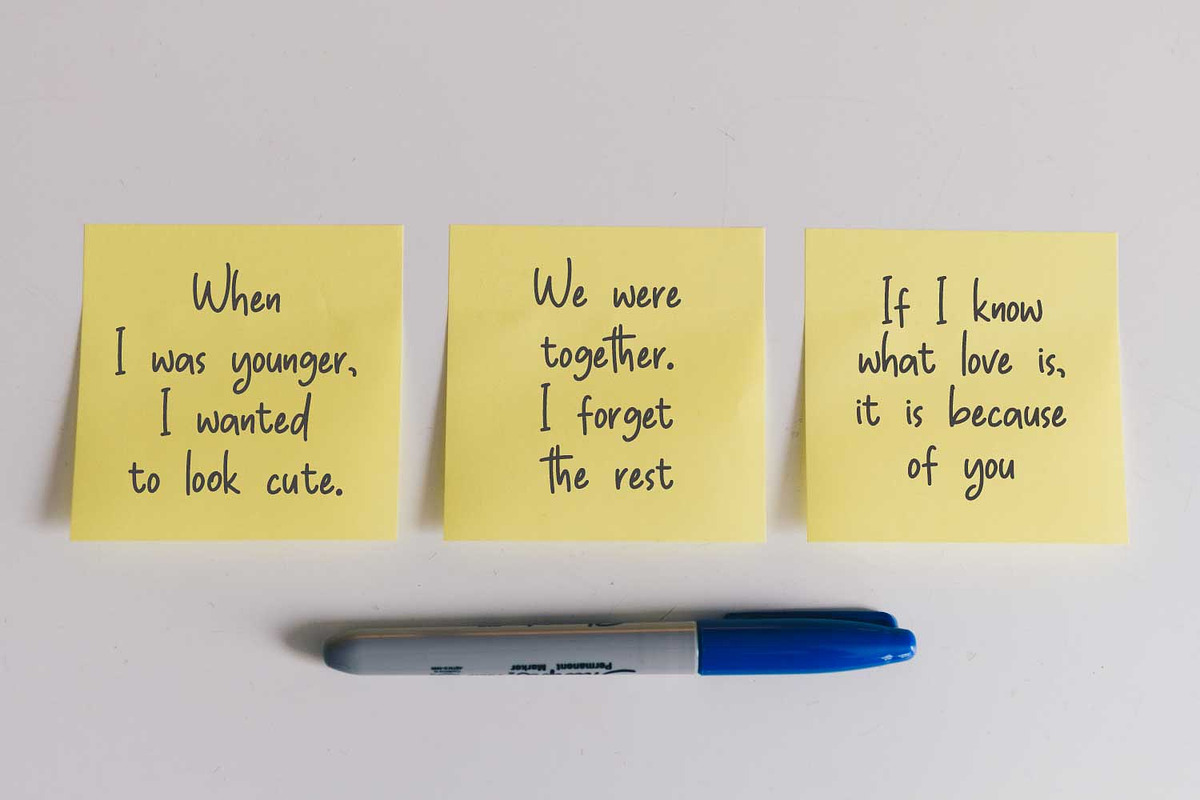 When
I was younger,
I wanted
to look cute.
We were
together.
I forget
the rest
If I know
what love is,
it is because
of you
Permanent Marker